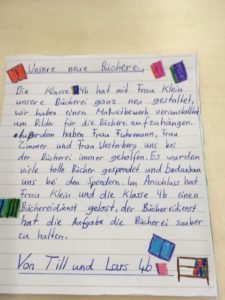 Unsere neue Bücherei
Die Klasse 4b hat mit Frau Klein
unsere Bücherei ganz neu gestaltet,
wir haben einen Malwettbewerb veranstaltet
um Bilder für die Bücherei aufzuhängen.
Außerdem haben Frau Fuhrmann, Frau
Zimmer und Frau Westerberg uns bei
der Bücherei immer geholfen. Es wurden
viele tolle Bücher gespendet und bedanken
uns bei den Spendern. Im Anschluss hat
Frau Klein und die Klasse 4b einen
Büchereidienst gelost, der Büchereidienst
hat die Aufgabe die Bücherei sauber
zu halten.
Von Till und Lars 4b